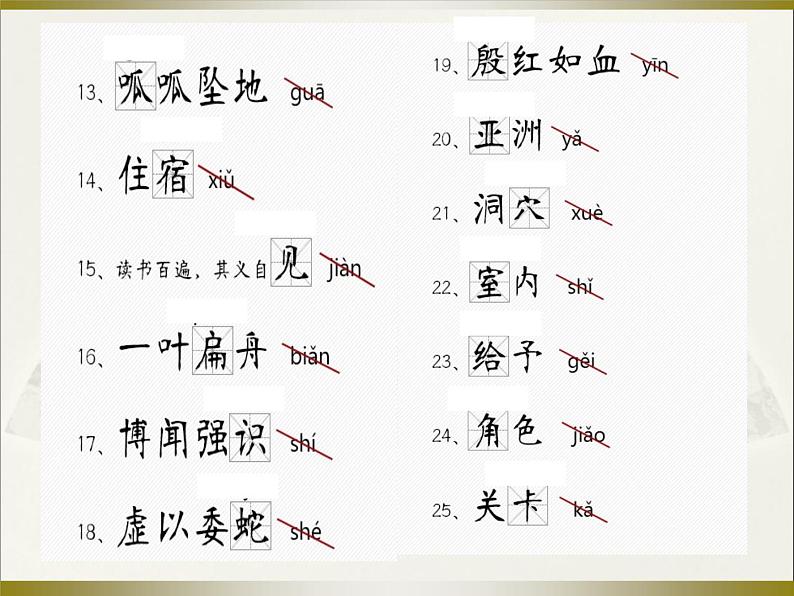 13、呱呱坠地 guā
14、住宿 xiǔ
15、读书百遍，其义自见 jiàn
16、一叶扁舟 biǎn
17、博闻强识 shí
18、虚以委蛇 shé
19、殷红如血 yīn
20、亚洲 yǎ
21、洞穴 xuè
22、室内 shǐ
23、给予 gěi
24、角色 jiǎo
25、关卡 kǎ